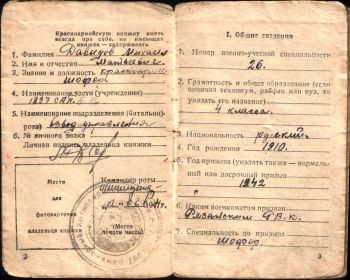 Красноармейскую книжку иметь
всегда при себе. Не имеющих
книжек — задерживать.
1. Фамилия Давыдов Михаил
2. Имя и отчество Матвеевич
3. Звание и должность красноармеец
шофер
4. Наименование части (учреждения)
1897 ОАП
5. Наименование подразделения (батальон,
рота) взвод управления
6. № личного знака
Личная подпись владельца книжки
Место
для
фотокарточки
владельца книжки
Командир роты
(Место
печати части)
2
I. Общие сведения
1. Номер военно-учетной специальности
26.
2. Грамотность и общее образование (если
окончил техникум, рабфак или вуз, то
указать его название)
4 класса.
3. Национальность русский.
4. Год рождения 1910.
5. Год призыва (указать также — нормаль-
ный или досрочный призыв
1942
6. Каким военкоматом призван
Рязанским Г.В.К.
7. Специальность до призыва
шофер.
3